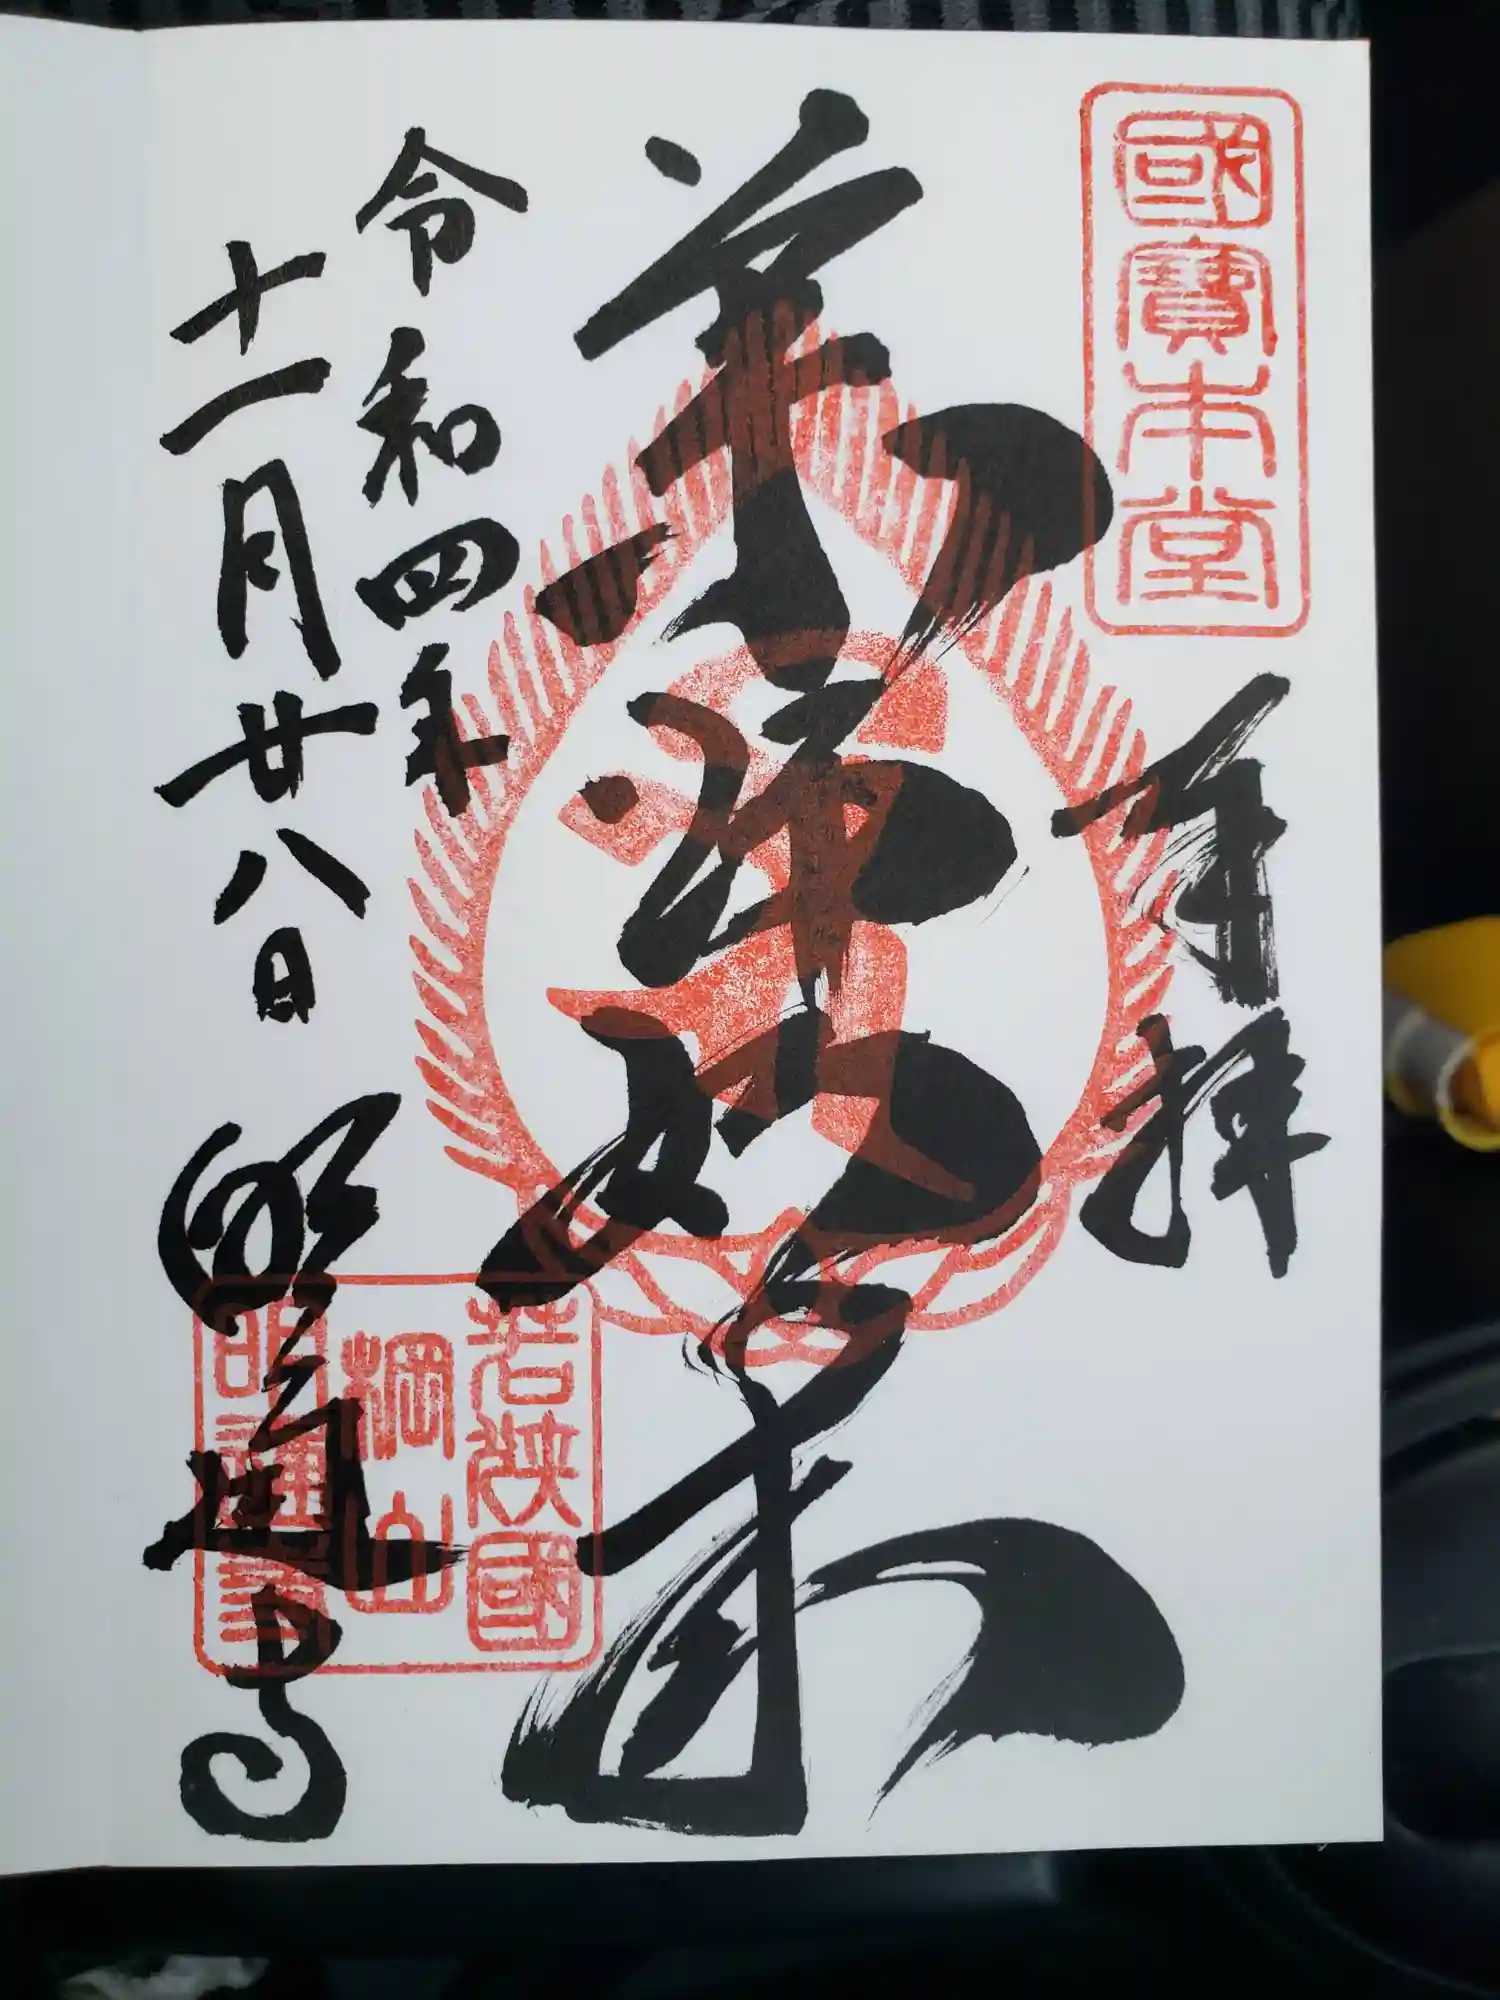 國寶本堂
奉拝
薬師如来
令和四年
十一月廿八日
明通寺
若狭國
棡山
明通寺